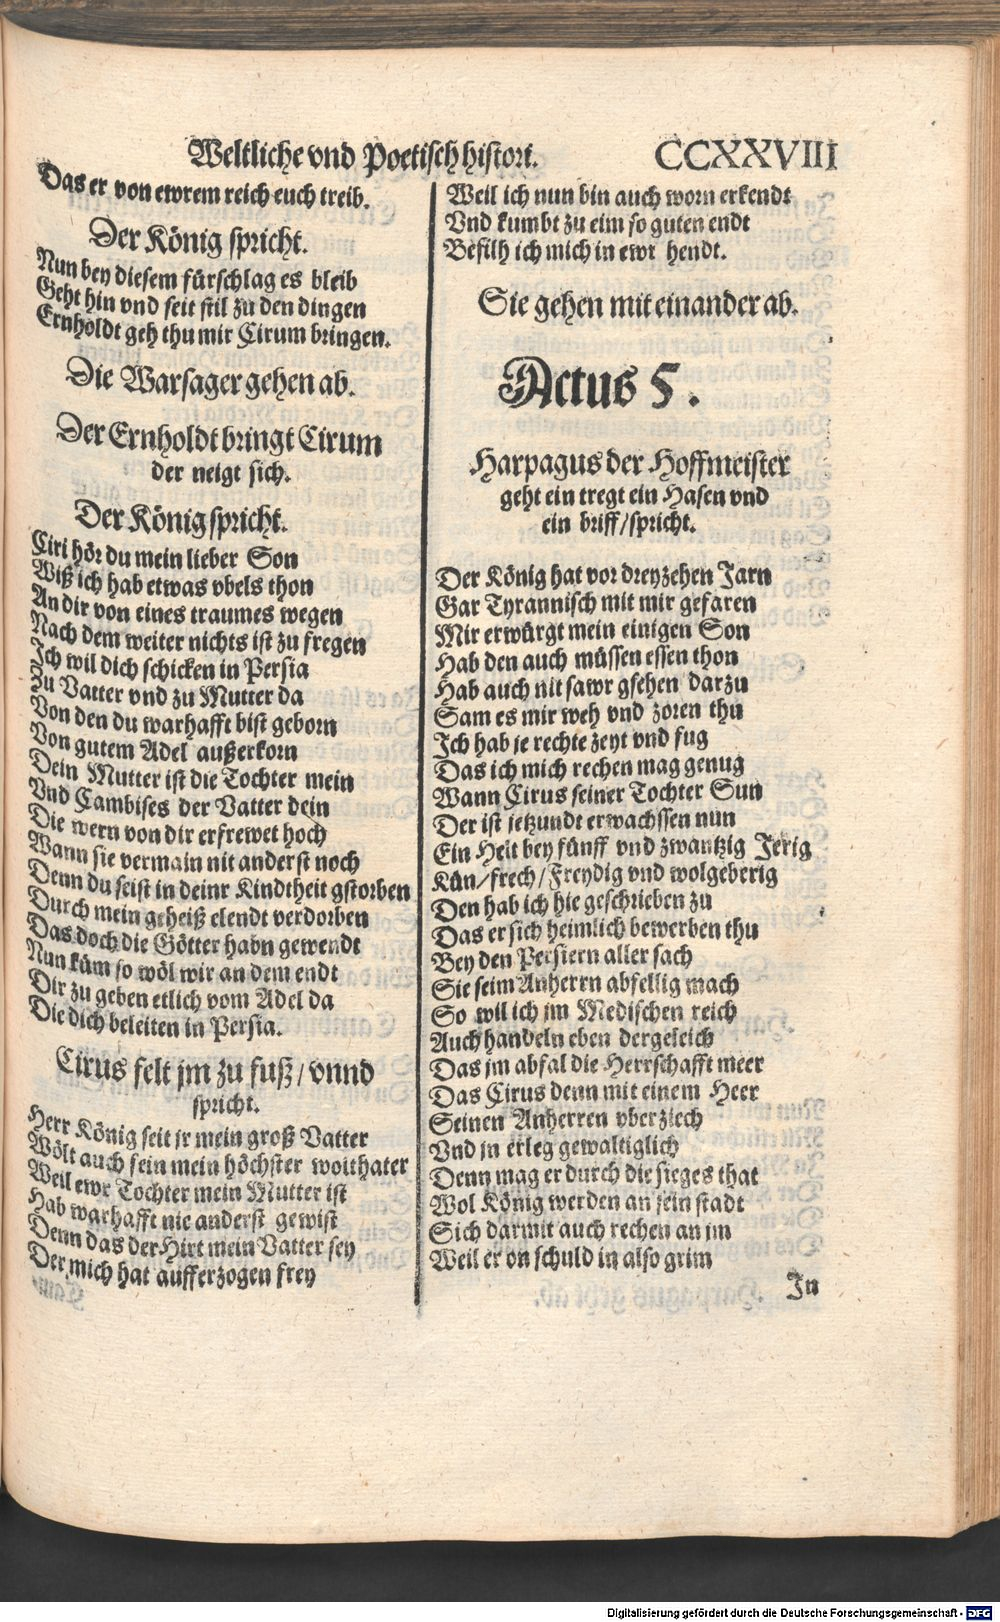 Weltliche vnd Poetisch histori. CCXXVIII
Das er von ewrem reich euch treib.
Der König spricht.
Nun bey diesem fürschlag es bleib
Geht hin vnd seit stil zu den dingen
Ernholdt geh thu mir Cirum bringen.
Die Warsager gehen ab.
Der Ernholdt bringt Cirum
der neigt sich.
Der König spricht.
Ciri hör du mein lieber Son
Wiß ich hab etwas vbels thon
An dir von eines traumes wegen
Nach dem weiter nichts ist zu fregen
Ich wil dich schicken in Persia
Zu Vatter vnd zu Mutter da
Von den du warhafft bist geborn
Von gutem Adel außerkorn
Dein Mutter ist die Tochter mein
Vnd Cambises der Vatter dein
Die wern von dir erfrewet hoch
Wann sie vermain nit anderst noch
Denn du seist in deinr Kindtheit gstorben
Durch mein geheiß elendt verdorben
Das doch die Götter habn gewendt
Nun küm so wöl wir an dem endt
Dir zu geben etlich vom Adel da
Die dich beleiten in Persia.
Cirus felt jm zu fuß / vnnd
spricht.
Herr König seit jr mein groß Vatter
Wölt auch sein mein höchster wolthater
Weil ewr Tochter mein Mutter ist
Hab warhafft nie anderst gewist
Denn das der Hirt mein Vatter sey
Der mich hat aufferzogen frey
Weil ich nun bin auch worn erkendt
Vnd kumbt zu eim so guten endt
Befilh ich mich in ewr hendt.
Sie gehen mit einander ab.
Actus 5.
Harpagus der Hoffmeister
geht ein tregt ein Hasen vnd
ein briff / spricht.
Der König hat vor dreyzehen Jarn
Gar Tyrannisch mit mir gefaren
Mir erwürgt mein einigen Son
Hab den auch müssen essen thon
Hab auch nit sawr gsehen darzu
Sam es mir weh vnd zoren thu
Ich hab je rechte zeyt vnd fug
Das ich mich rechen mag genug
Wann Cirus seiner Tochter Sun
Der ist jetzundt erwachssen nun
Ein Helt bey fünff vnd zwantzig Jerig
Kün / frech / Freydig vnd wolgeberig
Den hab ich hie geschrieben zu
Das er sich heimlich bewerben thu
Bey den Persiern aller sach
Sie seim Anherrn abfellig mach
So wil ich jm Medischen reich
Auch handeln eben dergeleich
Das jm abfal die Herrschafft meer
Das Cirus denn mit einem Heer
Seinen Anherren vberziech
Vnd jn erleg gewaltiglich
Denn mag er durch die sieges that
Wol König werden an sein stadt
Sich darmit auch rechen an jm
Weil er on schuld in also grim
In
Digitalisierung gefördert durch die Deutsche Forschungsgemeinschaft - DFG